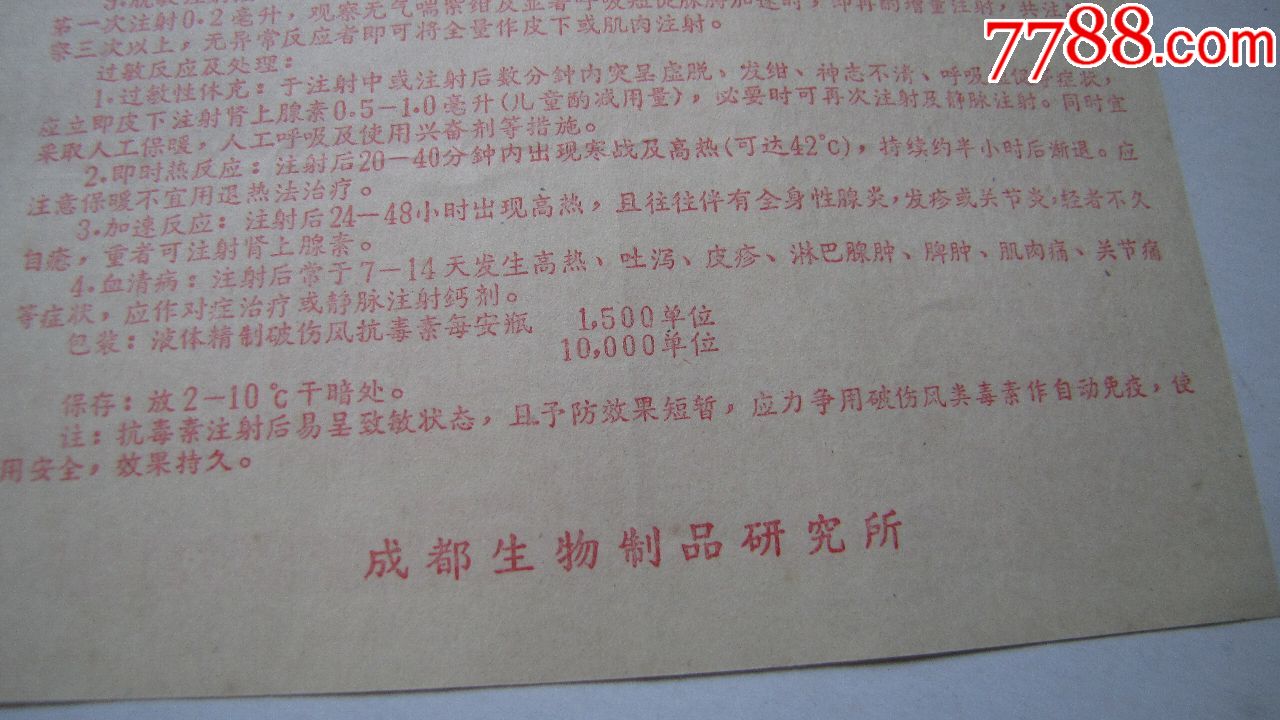 第一次注射0.2毫升，观察无气喘紫绀及显著呼吸短促脉搏加速时，即再酌增量注射，共注
察三次以上，无异常反应者即可将全量作皮下或肌肉注射。
过敏反应及处理：
1.过敏性休克：于注射中或注射后数分鈡内突呈虚脱、发绀、神志不清、呼吸 症状，
应立即皮下注射肾上腺素0.5—1.0毫升(儿童酌减用量)，必要时可再次注射及静脉注射。同时宜
采取人工保暖，人工呼吸及使用兴奋剂等措施。
2.即时热反应：注射后20—40分鈡内出现寒战及高热(可达42°c)，持续约半小时后渐退。应
注意保暖不宜用退热法治疗。
3.加速反应：注射后24—48小时出现高热，且往往伴有全身性腺炎，发疹或关节炎，轻者不久
自癒，重者可注射肾上腺素。
4.血清病：注射后常于7—14天发生高热、吐泻、皮疹、淋巴腺肿、脾肿、肌肉痛、关节痛
等症状，应作对症治疗或静脉注射钙剂。
包装：液体精制破伤风抗毒素每安瓶 1,500单位
10,000单位
保存：放2—10℃干暗处。
注：抗毒素注射后易呈致敏状态，且予防效果短暂，应力争用破伤风类毒素作自动免疫，使
用安全，效果持久。
成都生物制品研究所
7788.com